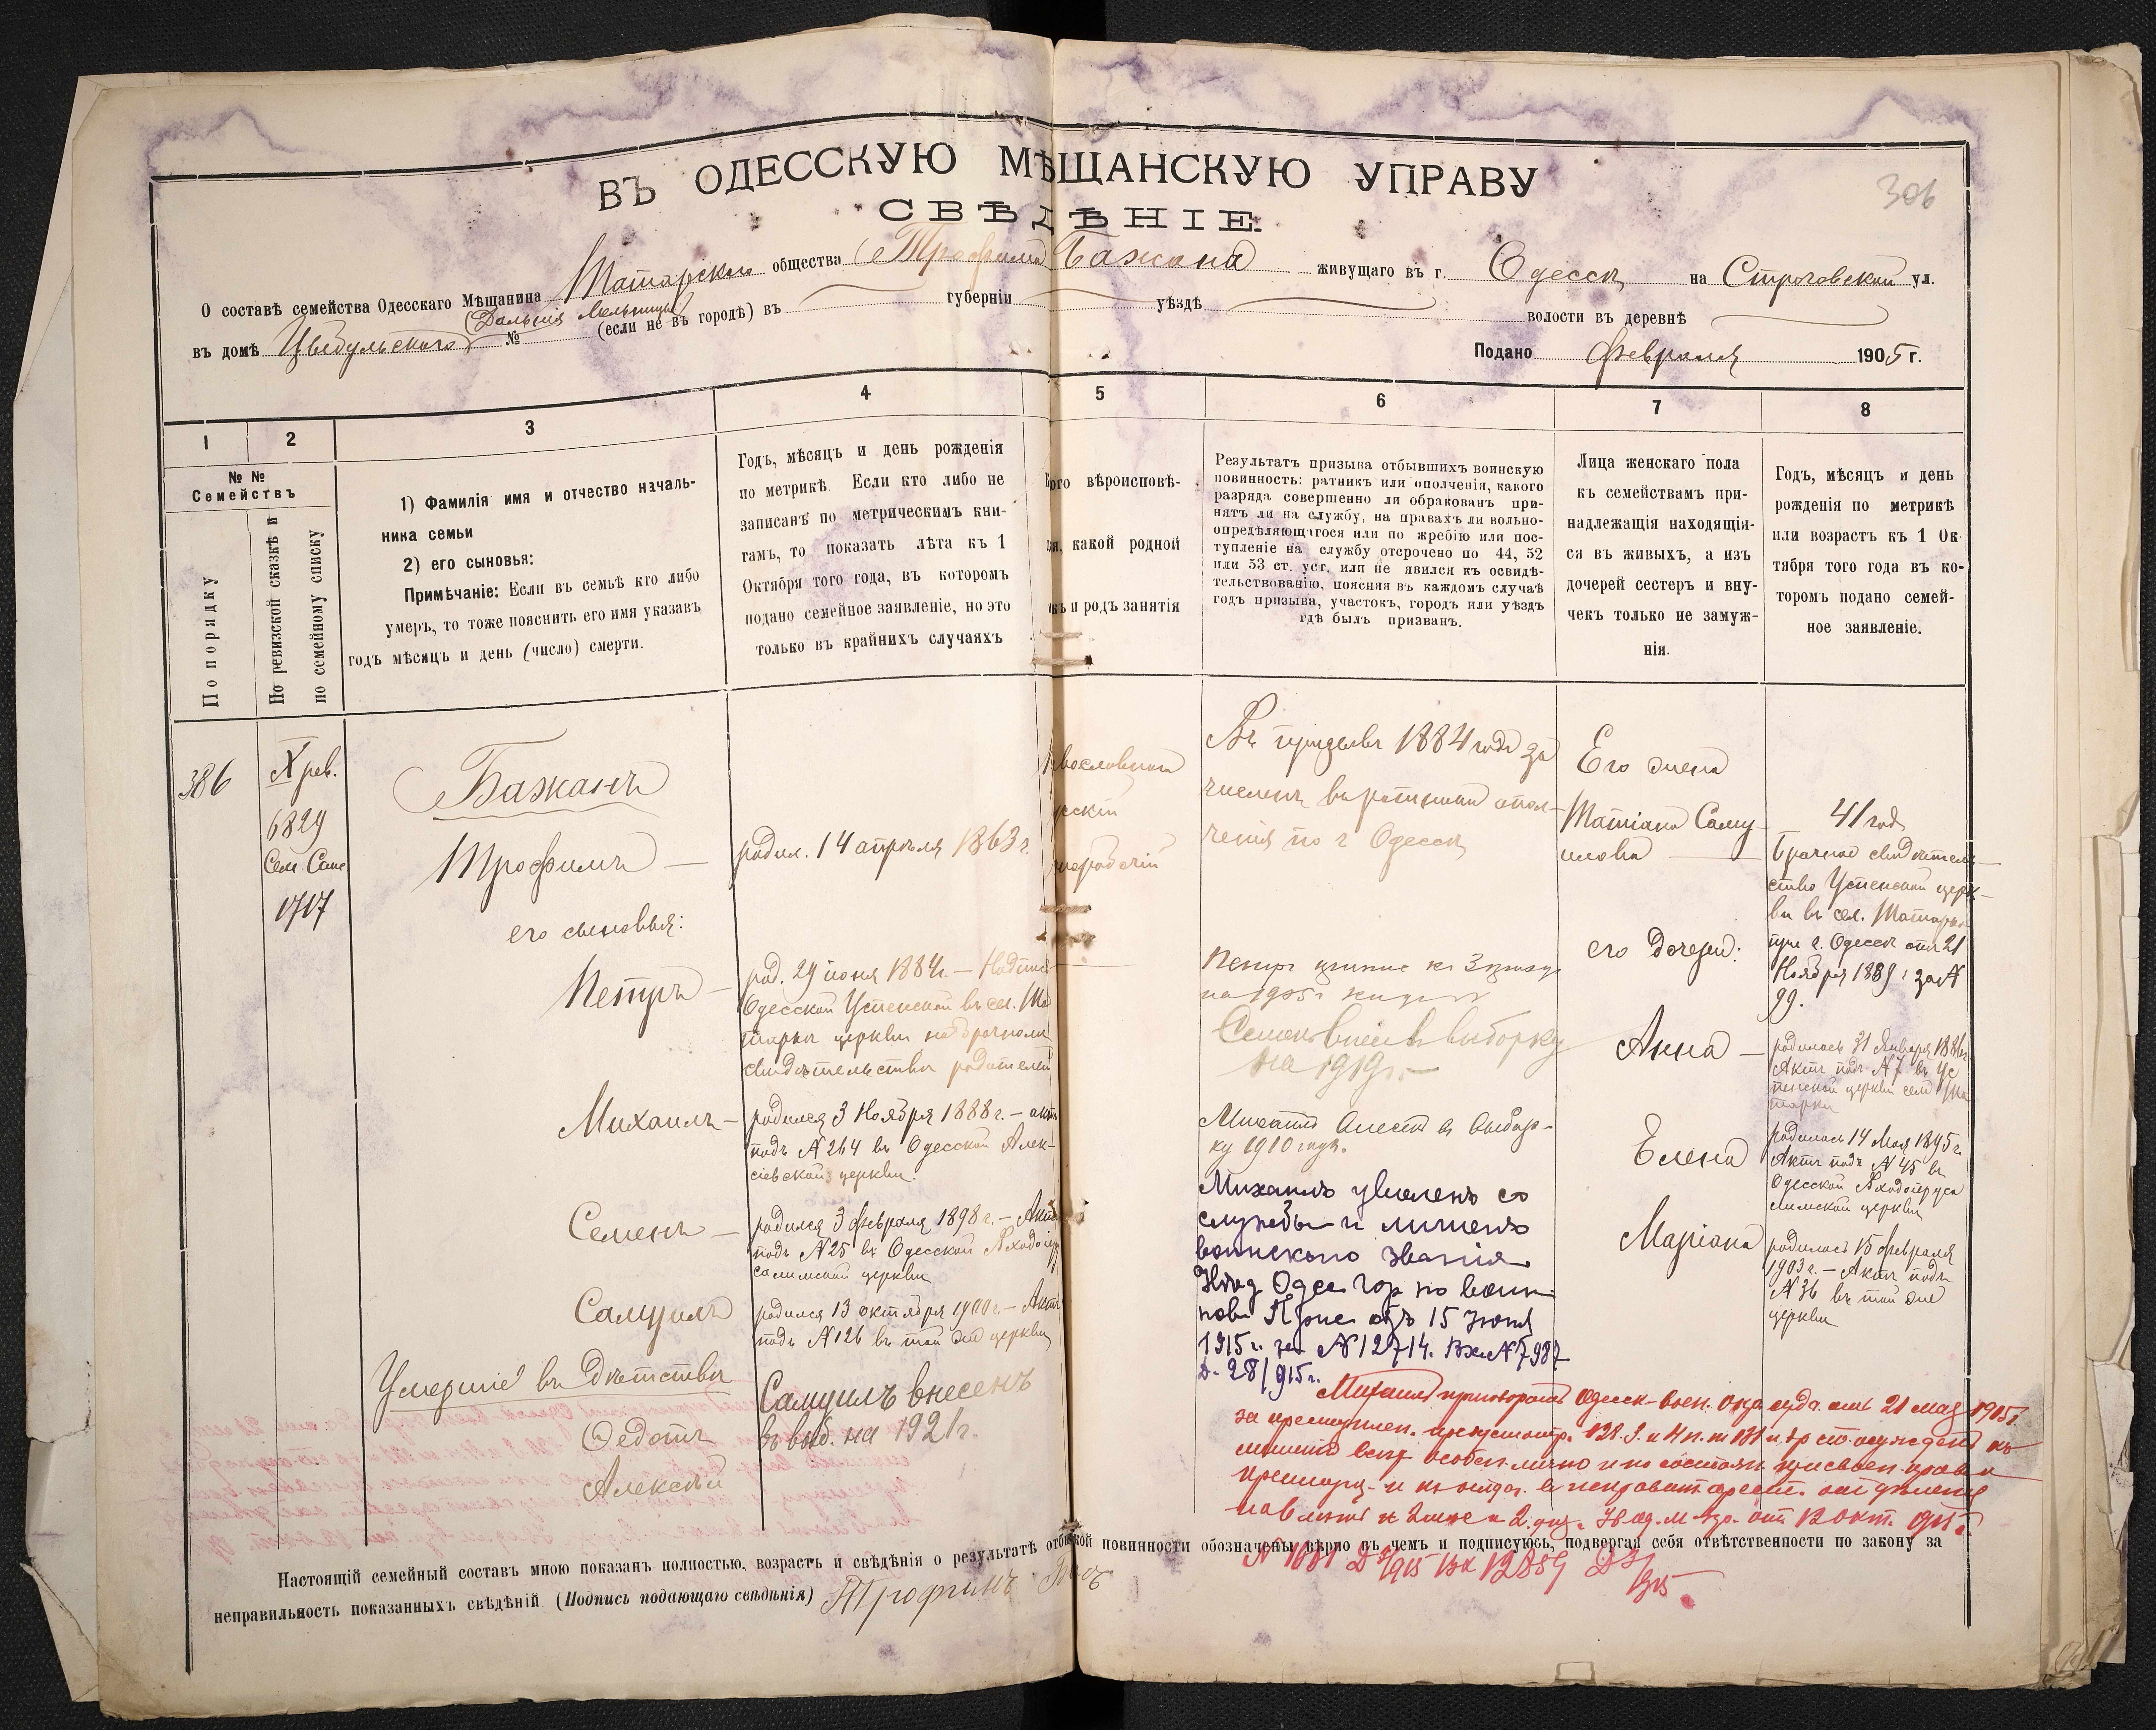 306
ВЪ ОДЕССКУЮ МѢЩАНСКУЮ УПРАВУ
СВѢДѢНІЕ
О составѣ семейства Одесскаго Мѣщанина Татарскаго общества Трофима Бажана живущаго въ г. Одессѣ на Строговской ул.
(Дальнія Мельницы)
въ домѣ Цвибульскаго № (если не въ городѣ) въ губерніи уѣздѣ волости въ деревнѣ
Подано февраля 1905 г.
1 2 3 4 5 6 7 8
№ №
Семействъ
По порядку
По ревизской сказкѣ и
по семейному списку
1) Фамилія имя и отчество началь-
ника семьи
2) его сыновья:
Примѣчаніе: Если въ семьѣ кто либо
умеръ, то тоже пояснить его имя указавъ
годъ мѣсяцъ и день (число) смерти.
Годъ, мѣсяцъ и день рожденія
по метрикѣ. Если кто либо не
записанъ по метрическимъ кни-
гамъ, то показать лѣта къ 1
Октября того года, въ которомъ
подано семейное заявленіе, но это
только въ крайнихъ случаяхъ
вѣроисповѣ-
какой родной
и родъ занятія
Результатъ призыва отбывшихъ воинскую
повинность: ратникъ или ополченія, какого
разряда совершенно ли обракованъ при-
нятъ ли на службу, на правахъ ли вольно-
опредѣляющагося или по жребію или пос-
тупленіе на службу отсрочено по 44, 52
или 53 ст. уст. или не явился къ освидѣ-
тельствованію, поясняя въ каждомъ случаѣ
годъ призыва, участокъ, городъ или уѣздъ
гдѣ былъ призванъ.
Лица женскаго пола
къ семействамъ при-
надлежащія находящія-
ся въ живыхъ, а изъ
дочерей сестеръ и вну-
чекъ только не замуж-
нія.
Годъ, мѣсяцъ и день
рожденія по метрикѣ
или возрастъ къ 1 Ок-
тября того года въ ко-
торомъ подано семей-
ное заявленіе.
386
X рев.
6829
Сем. Спис
1717
Бажанъ
Трофимъ —
его сыновья:
Петръ —
Михаилъ —
Семенъ —
Самуилъ
Умершіе въ дѣтствѣ
Ѳедотъ
Алексѣй
родил. 14 апрѣля 1863 г.
род. 29 іюня 1884 г. —
Одесской Успенской въ сел. Та
тарка церкви на брачномъ
свидѣтельствѣ родителей
родился 3 Ноября 1888 г. — актъ
подъ № 264 въ Одесской Алек-
сіевской церкви.
родился 3 февраля 1898 г. — Актъ
подъ № 25 въ Одесской Входоіер
салимской церкви
родился 13 октября 1900 г. — Актъ
подъ № 126 въ той же церкви
Самуилъ внесенъ
въ выб. на 1921 г.
Въ призывъ 1884 года за
численъ въ ратники опол-
ченія по г. Одессѣ
Петръ
на 1905 г.
Семенъ внесенъ въ выборку
на 1919 г. —
Михаилъ внесенъ въ выбор-
ку 1910 года.
Михаилъ уволенъ со
службы и лишенъ
воинскаго званія
Одес Гор по воин
пов Прис отъ 15 Іюня
1915 г. за № 12714. Вх № 7987
Д. 28/915 г.
Его жена
Татіана Саму-
илова —
его дочери:
Анна —
Елена
Маріана
41 годъ
Брачное свидѣтель-
ство Успенской церк-
ви въ сел. Татарка
при г. Одессѣ отъ 21
Ноября 1889 г за №
99.
родилась 31 Января 1886 г.
Актъ подъ № 7 въ Ус
пенской церкви села Та
тарки
родилась 14 Мая 1895 г.
Актъ подъ № 45 въ
Одесской Входоіеруса
лимской церкви
родилась 15 февраля
1903 г. — Актъ подъ
№ 36 въ той же
церкви
Михаилъ приговоромъ Одесск. воен. окр. суда отъ 21 мая 1915 г.
за преступлен. предусмотр. 128. осужденъ къ
лишенію всѣхъ особен. лично и по состоян. присвоен. правъ и
преимущ. и къ отдач. въ исправит. арест. отдѣленія
отъ 12 окт. 915 г.
№ 1681 Вх 12859
915.
Настоящій семейный составъ мною показанъ полностью, возрастъ и свѣдѣнія о результатѣ повинности обозначены вѣрно въ чемъ и подписуюсь, подвергая себя отвѣтственности по закону за
неправильность показанныхъ свѣдѣній (Подпись подающаго свѣдѣнія) Трофимъ